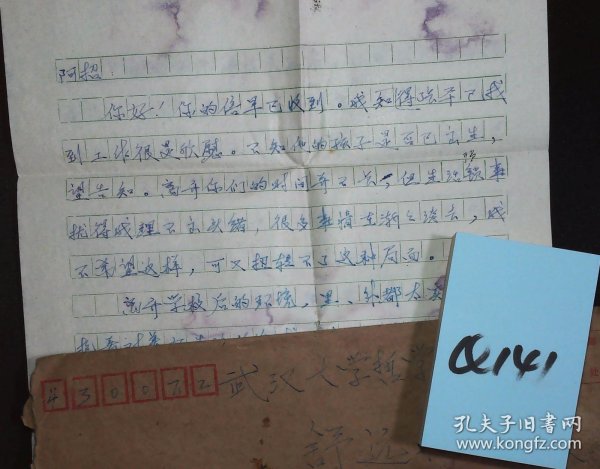 阿招：
你好！你的信早已收到。我知得 已找
到工作很是欣慰。不知你的孩子是否已出生，
望告知。离开你们的时间并不长，但生活 事
扰得我理不出头绪，很多事情在渐渐 去，我
不希望这样，可又扭转不了这种局面。
离开学校后的环境，里、外都太
430072 武汉大学哲学
舒远
QY141
孔夫子旧书网
www.kongfz.com